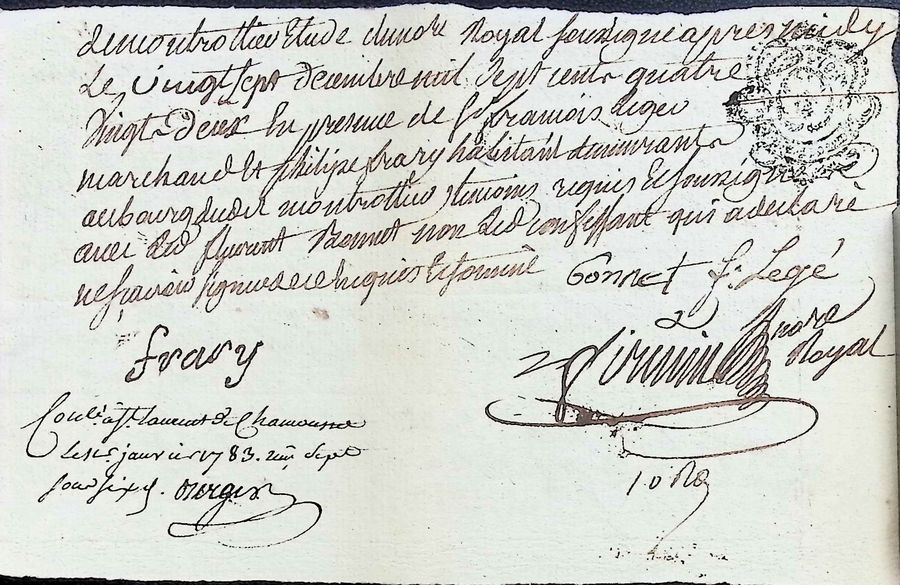 de montrottier Etude du no.re Royal soussigné apres midy
Le vingt sept decembre mil sept cents quatre
vingt deux En presence de s.r francois Leger
marchand Et philipe frary habitant demeurants
au bourg dudit montrottier temoins requis Et soussignes
avec led. Bonnet non led. confessant qui a declaré
ne savoir signer de ce Enquis Et sommé
Bonnet f. Legé
frary
no.re
Royal
Con.lé a S.t laurent de Chamousset
Le janvier 1783. Reçu Sept
sous six d.
10